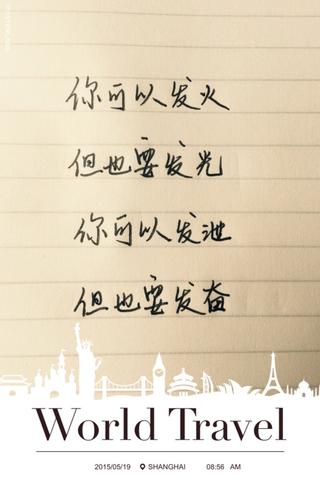 你可以发火
但也要发光
你可以发泄
但也要发奋
World Travel
2015/05/19 SHANGHAI 08:56 AM